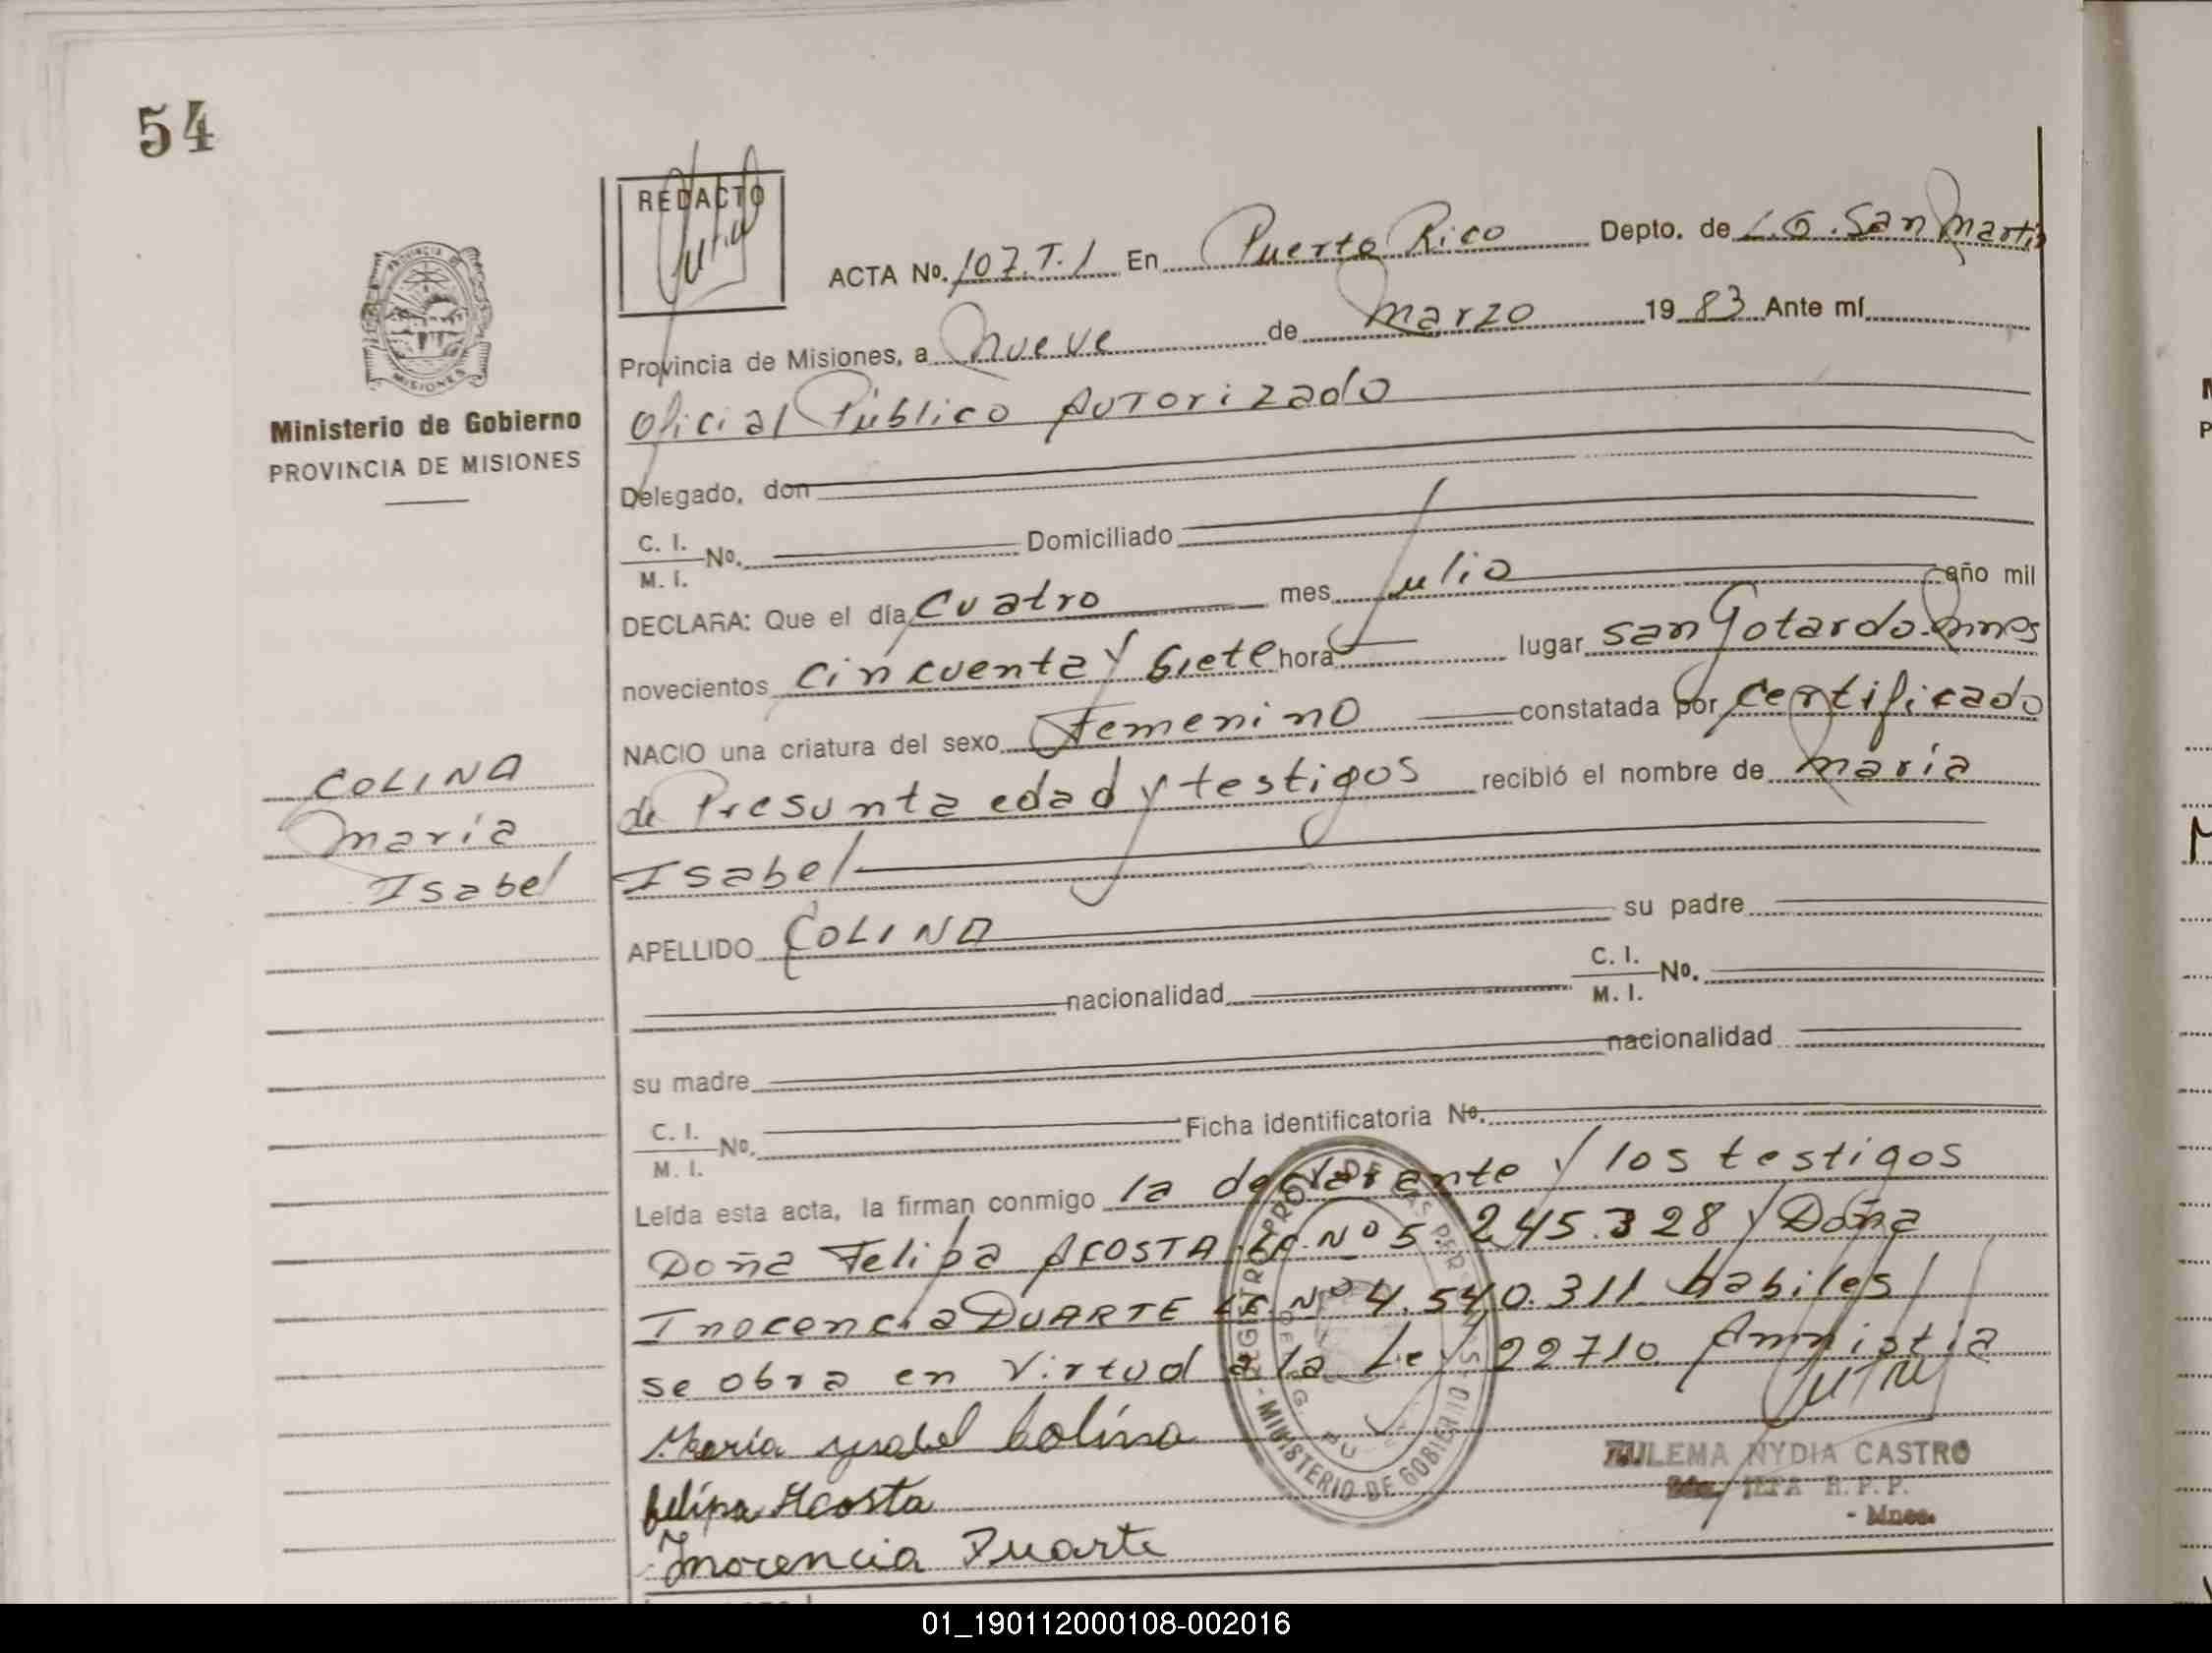 54
REDACTO
ACTA No. 107.T.1 En Puerto Rico Depto. de L.G. San Martín
Provincia de Misiones, a nueve de marzo 1983 Ante mí
Oficial Público Autorizado
Delegado, don
C. I.
M. I. No. Domiciliado
DECLARA: Que el día cuatro mes Julio año mil
novecientos cincuenta y siete hora lugar San Gotardo. Mnes
NACIO una criatura del sexo Femenino constatada por certificado
de Presunta edad y testigos recibió el nombre de maría
Isabel
APELLIDO COLINA su padre
nacionalidad C. I.
M. I. No.
su madre nacionalidad
C. I.
M. I. No. Ficha identificatoria No.
Leída esta acta, la firman conmigo la declarante y los testigos
Doña Felipa ACOSTA Nº 5.245.328 y Doña
Inocencia DUARTE Nº 4.540.311 habiles
se obra en virtud a la Ley 22710 Amnistia
María ysabel Colina
felipa Acosta
Inocencia Duarte
PROVINCIA DE
MISIONES
Ministerio de Gobierno
PROVINCIA DE MISIONES
COLINA
maría
Isabel
REGISTRO PROV. DE LAS PERSONAS
- MINISTERIO DE GOBIERNO -
ZULEMA NYDIA CASTRO
JEFA R. P. P.
- Mnes.
01_190112000108-002016